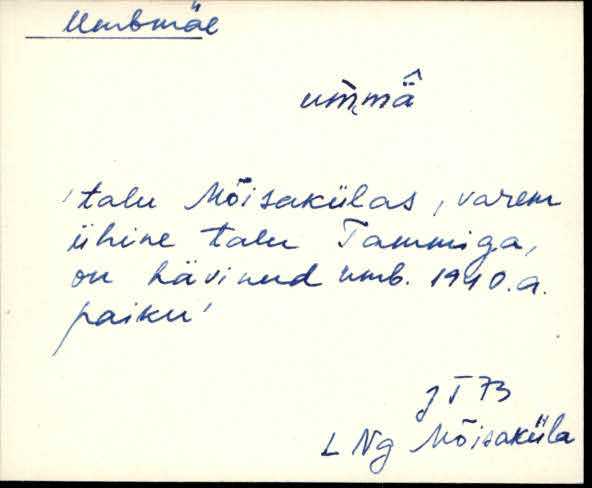 Umbmäe
um̀mä̂
'talu Mõisakülas, varem
ühine talu Tammiga,
on hävinud umb. 1940.a.
paiku'
JT 73
L Ng Mõisaküla